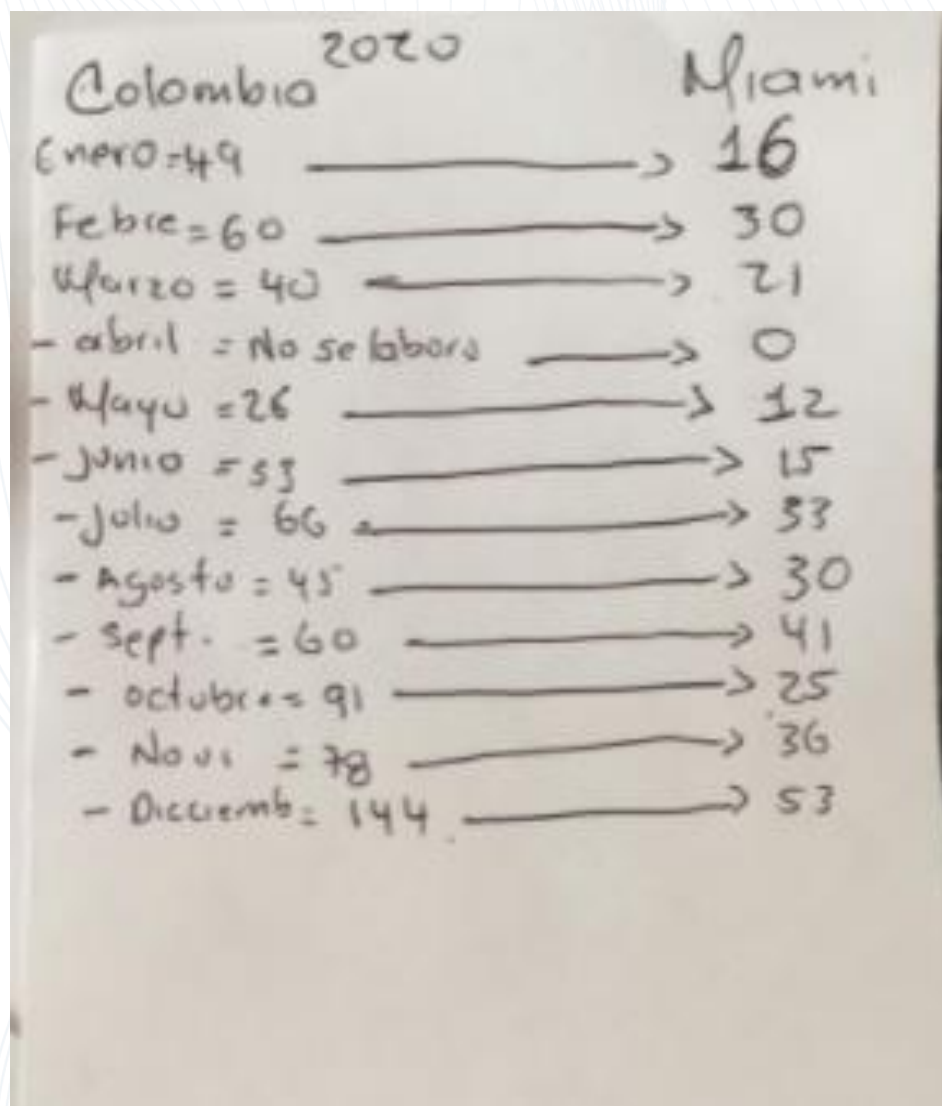 2020
Colombia Miami
Enero=49 → 16
Febre=60 → 30
Marzo = 40 → 21
- abril = No se laboro → 0
- Mayo = 26 → 12
- junio = 53 → 15
- julio = 66 → 33
- Agosto = 45 → 30
- sept. = 60 → 41
- octubre = 91 → 25
- Novi = 78 → 36
- Dicciemb= 144 → 53